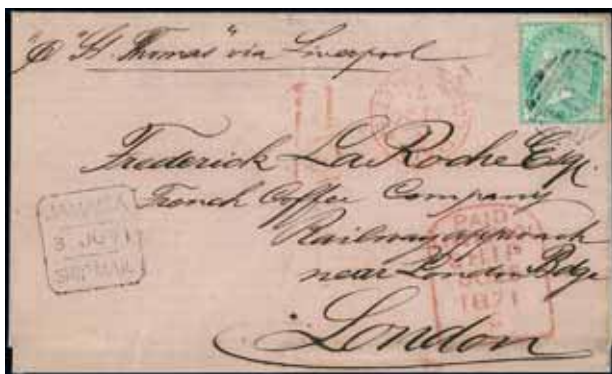 "p "St. Thomas" via Liverpool
Frederick LaRoche Esq.
French Coffee Company
Railway approach
near London Bdge
London
JAMAICA
SHIP MAIL
PAID
SHIP
1871